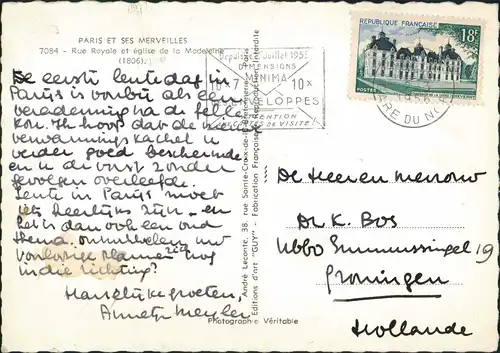 PARIS ET SES MERVEILLES
7084 - Rue Royale et église de la Madeleine
(1806).
De eerste lentedag in
Parijs is voorbij als een
verademing na de felle
kou. Ik hoop dat de
verwarmings kachel u
verder goed beschermde
en u de vorst zonder
gevolgen overleefde.
Lente in Parijs moet
iets heerlijks zijn - en
het is dan ook een oud
thema.
in die richting?
Hartelijke groeten,
Annetje
André Leconte, 38, rue Sainte-Croix-de-la-Bretonnerie, Paris
Editions d'art "GUY" - Fabrication Française - Reproduction interdite
Photographie Véritable
Juillet 1955
DIMENSIONS
MINIMA
10 x 7
ENVELOPPES
ATTENTION
CARTES DE VISITE
REPUBLIQUE FRANÇAISE
18F
POSTES
GARE DU NORD
De Heer en mevrouw
Dr K. Bos
Groningen
Hollande